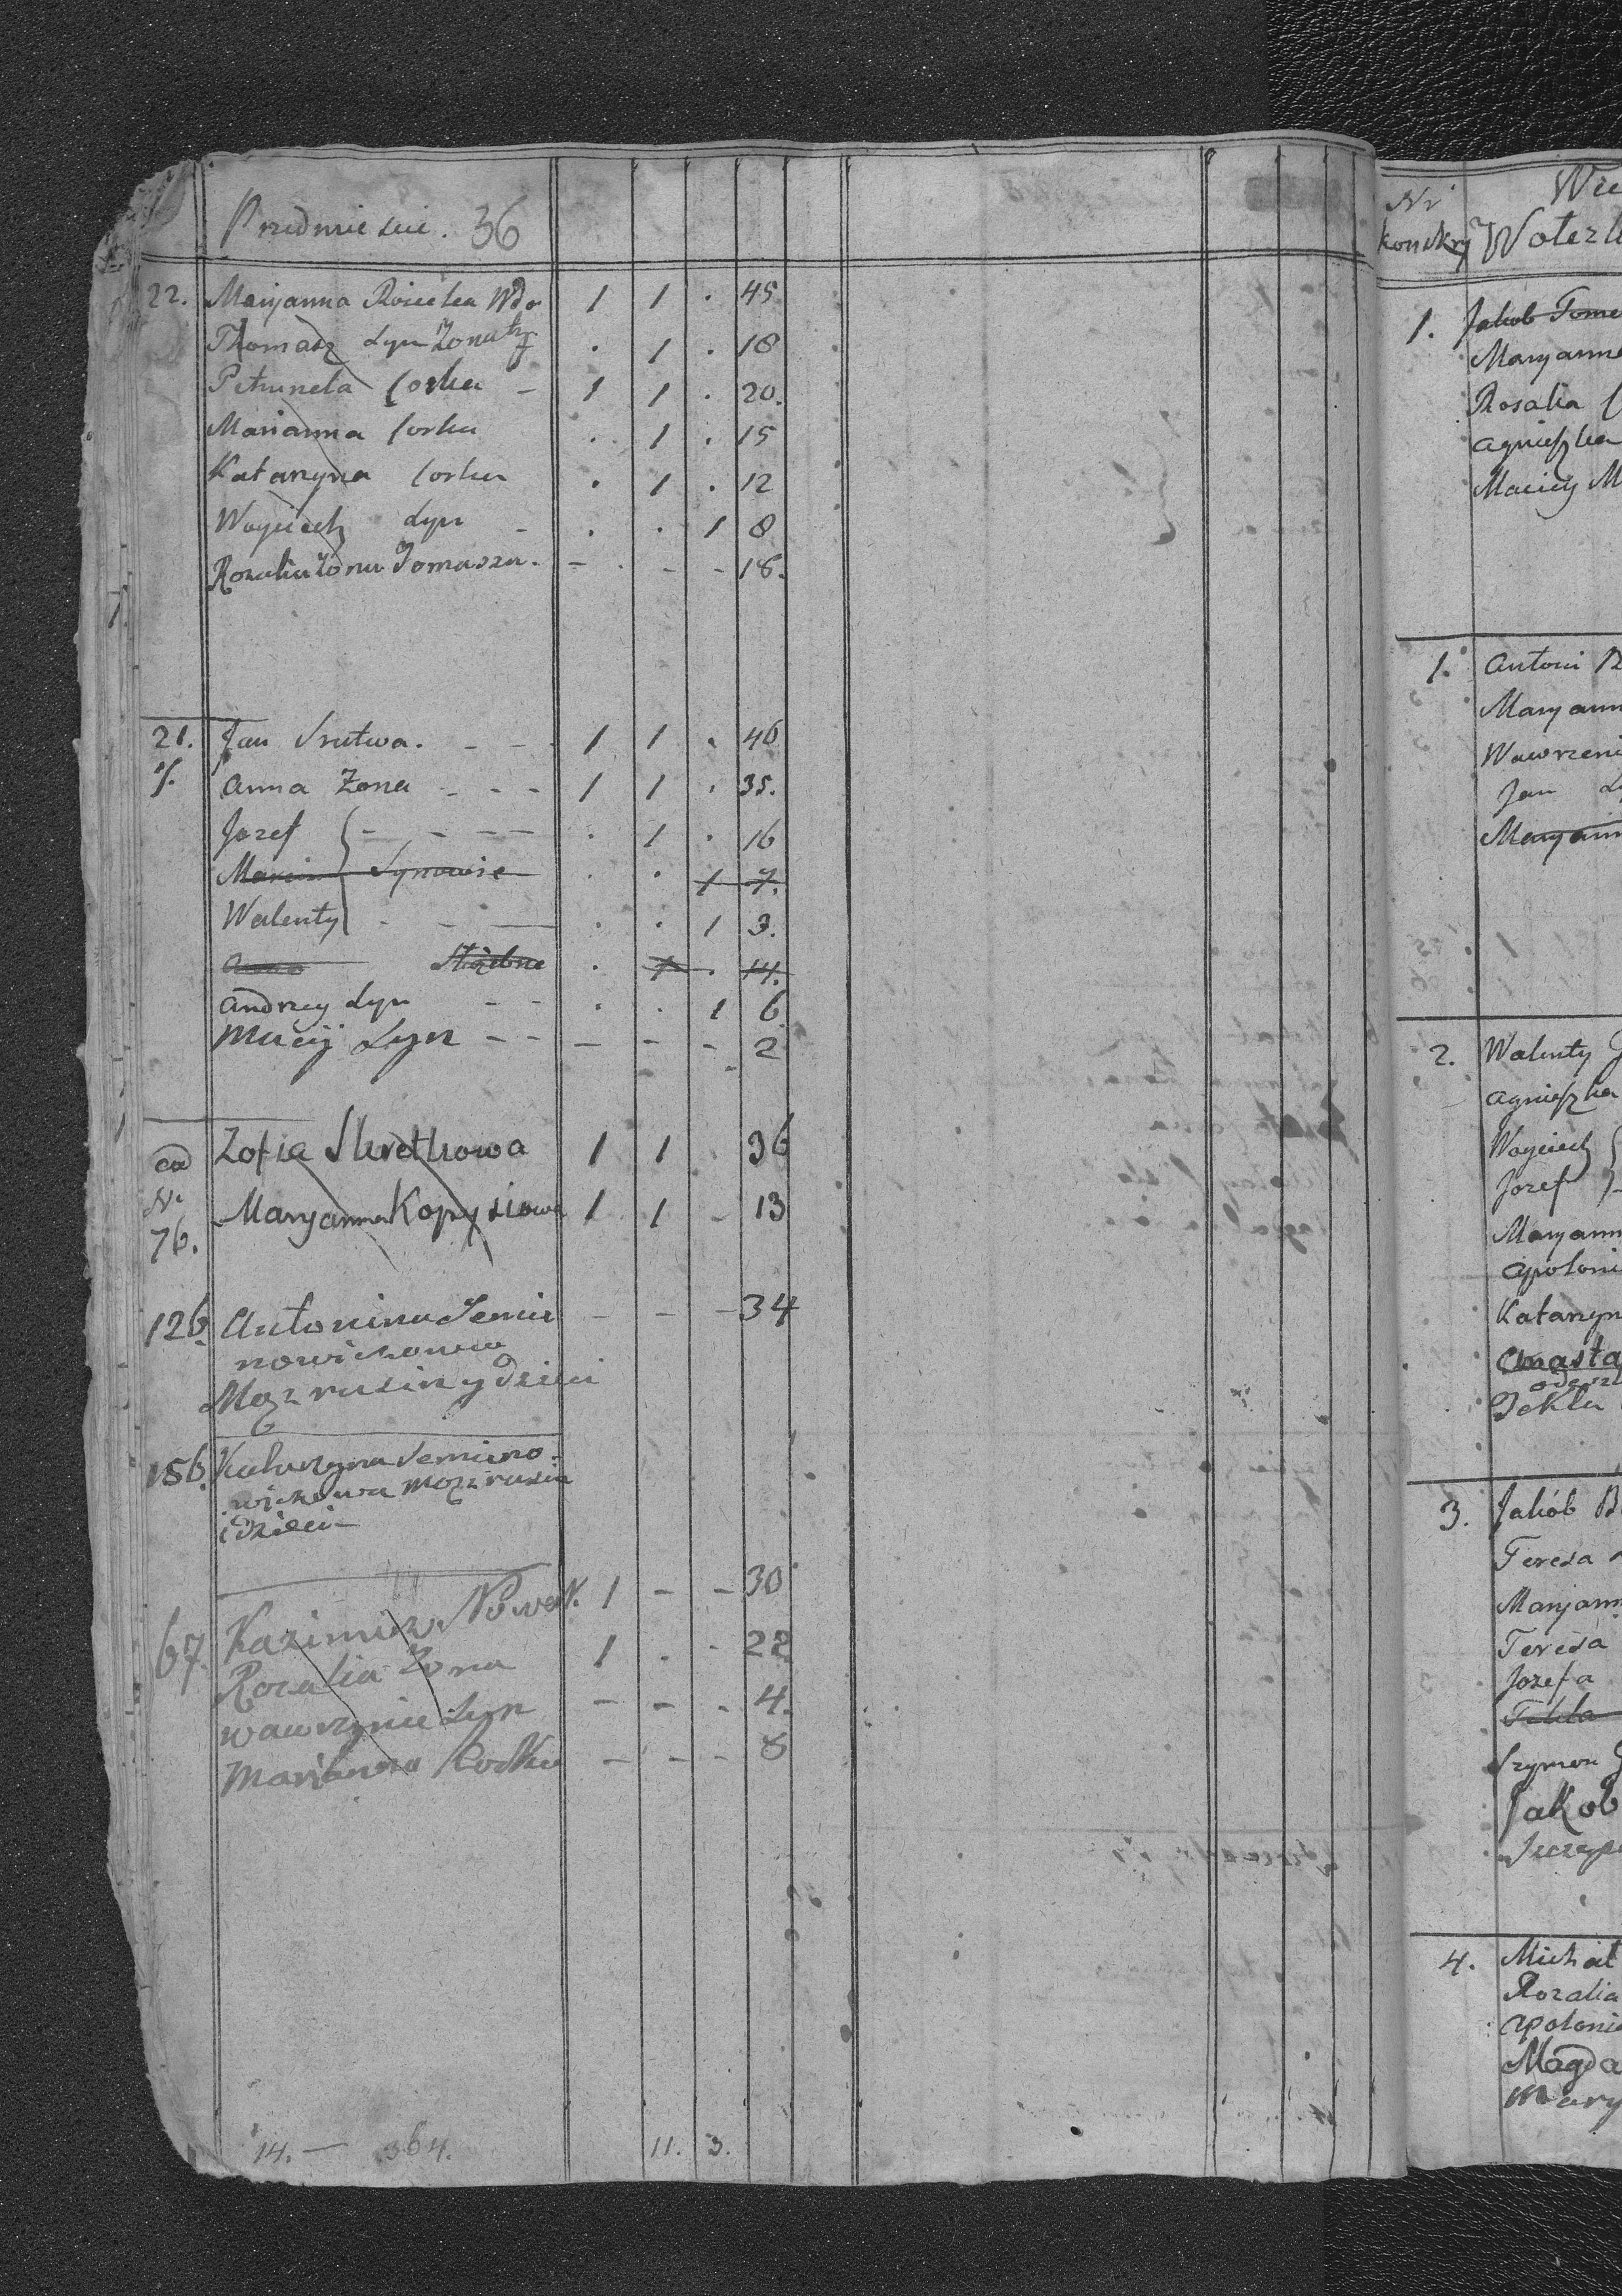 Przedmiescie. 36
22. Maryanna Wdo 1 1 . 45
Thomasz Syn Zonaty . 1 . 18
Petrunela Corka - 1 1 . 20.
Marianna Corka . 1 . 15
Katarzyna Corka . 1 . 12
Woyciech Syn - . . 1 8
Rozalia Zona Tomasza. - . - - 18.
21. Jan Srutwa. - - 1 1 . 46
Anna Zona - - - 1 1 . 35.
Jozef - - - - . 1 . 16
Marcin Synowie . . 1 7.
Walenty - - . . 1 3.
Anna Służebna . 1 . 14.
Andrzey Syn - - . . 1 6
Maciy Syn - - - - - 2
ad Zofia 1 1 36
Nr Maryanna Kopysiowa 1 1 - 13
76.
126. Antonina Semie - - - 34
nowiczowa
Mąz rusin y dzieci
156. Katarzyna Semieno
wiczowa mąz rusin
i Dzieci
67. Kazimierz Nowak. 1 - - 30
Rozalia Zona 1 . . 22
wawrzyniec Syn - - - 4.
Marianna Corka - - - 8
14. - 364. 11. 3.
Nr
konskry
Woterz
1. Jakob Tome
Maryanna
Rosalia
Agnieszka
Maciey M
1. Antoni
Maryann
Wawrzeni
Jan
Maryann
2. Walenty
Agnieszka
Woyciech
Jozef
Maryann
Apoloni
Katarzyn
Anasta
Tekla
3. Jakób B
Teresa
Maryann
Teresa
Jozefa
Tekla
Szymon
Jakob
Szczep
4. Michał
Rozalia
Apoloni
Magda
Mary